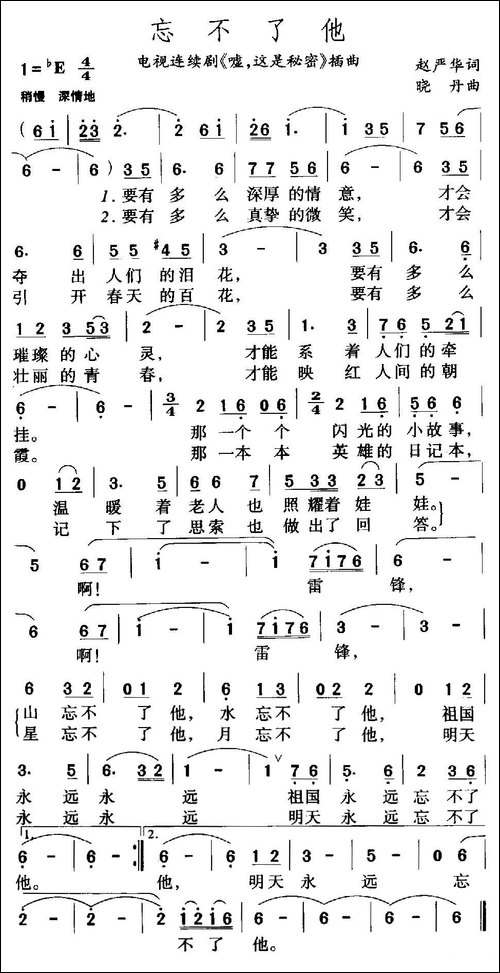 忘不了他
1=♭E 4/4
电视连续剧《嘘,这是秘密》插曲
赵严华词
稍慢 深情地
晓 丹曲
(6i 23 | 2· - | 2 6i | 2 6 1· | i 35 | 7 56 |
6 - | 6) 35 | 6· 6 | 77 56 | 6 - | 6 35 |
1.要有 多 么 深厚的情 意, 才会
2.要有 多 么 真挚的微 笑, 才会
6· 6 | 55 #45 | 3 - | 3 35 | 6· 6 |
夺 出 人们的泪 花, 要有多么
引 开 春天的百 花, 要有多么
12 353 | 2 - | 2 35 | 1· 3 | 76 521 |
璀璨的心 灵, 才能 系 着 人们的牵
壮丽的青 春, 才能 映 红 人间的朝
6 - | 6 - | 3/4 2 16 06 | 2/4 2 16 | 56 6 |
挂。 那一个个 闪光的小故事,
霞。 那一本本 英雄的日记本,
0 12 | 3· 5 | 66 7 | 533 323 | 5 - |
温 暖 着 老人也 照耀着娃 娃。
记 下 了 思索也 做出了回 答。
5 67 | i - | i - | 7i76 | 6 - |
啊! 雷 锋,
6 67 | i - | i - 1 | 7i76 | 3 - | 3 - |
啊! 雷 锋,
6 32 | 01 2 | 6 13 | 02 2 | 0 12 |
山 忘不 了他, 水 忘不 了他, 祖国
星 忘不 了他, 月 忘不 了他, 明天
3· 5 | 6· 32 | 1 - | 1 76 | 5· 6 | 2 36 |
永 远 永 远 祖国 永 远 忘不了
永 远 永 远 明天 永 远 忘不了
1. 2.
6 - | 6 - :‖ 6 - | 6 12 | 3 - | 5 - | 0 6 |
他。 他, 明天 永 远 忘
2 - | 2 - | i2i6 | 6 - | 6 - | 6 - ‖
不了 他。